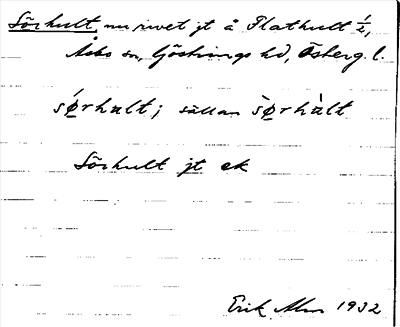 Sörhult, nu rivet jt å Flathult 1/2,
Åsbo sn, Göstrings hd, Österg. l.
sǿrhult; sällan sø̀rhùlt
Sörhult jt ek
Erik Alm 1932